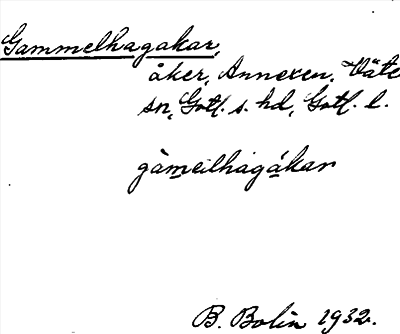 Gammelhagakar,
åker, Annexen, Väte
sn, Gotl. s. hd, Gotl. l.
gàmeilhagákar
B. Bolin 1932.